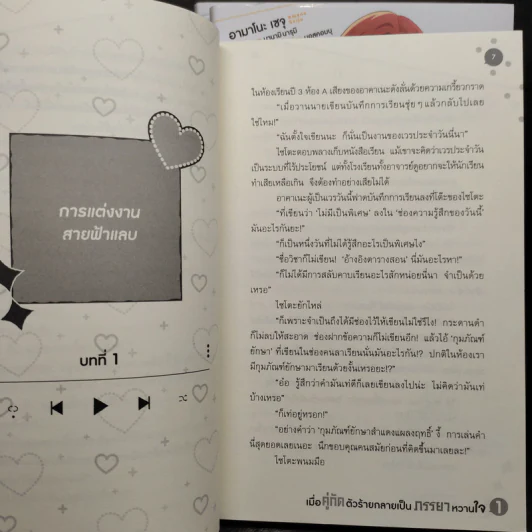 อามาโนะ เซจู
การแต่งงาน
สายฟ้าแลบ
บทที่ 1
7
ในห้องเรียนปี 3 ห้อง A เสียงของอาคาเนะดังลั่นด้วยความเกรี้ยวกราด
“เมื่อวานนายเขียนบันทึกการเรียนชุ่ย ๆ แล้วกลับไปเลย
ใช่ไหม!”
“ฉันตั้งใจเขียนนะ ก็นั่นเป็นงานของเวรประจำวันนี่นา”
ไซโตะตอบพลางเก็บหนังสือเรียน แม้เขาจะคิดว่าเวรประจำวัน
เป็นระบบที่ไร้ประโยชน์ แต่ทั้งโรงเรียนทั้งอาจารย์ดูอยากจะให้นักเรียน
ทำเสียเหลือเกิน จึงต้องทำอย่างเสียไม่ได้
อาคาเนะผู้เป็นเวรวันนี้ฟาดบันทึกการเรียนลงที่โต๊ะของไซโตะ
“ที่เขียนว่า ‘ไม่มีเป็นพิเศษ’ ลงใน ‘ช่องความรู้สึกของวันนี้’
มันอะไรกันยะ!”
“ก็เป็นหนึ่งวันที่ไม่ได้รู้สึกอะไรเป็นพิเศษไง”
“ชื่อวิชาก็ไม่เขียน! ‘อ้างอิงตารางสอน’ นี่มันอะไรหา!”
“ก็ไม่ได้มีการสลับคาบเรียนอะไรสักหน่อยนี่นา จำเป็นด้วย
เหรอ”
ไซโตะยักไหล่
“ก็เพราะจำเป็นถึงได้มีช่องไว้ให้เขียนไม่ใช่รึไง! กระดานดำ
ก็ไม่ลบให้สะอาด ช่องฝากข้อความก็ไม่เขียนอีก! แล้วไอ้ ‘กุมภัณฑ์
ยักษา’ ที่เขียนในช่องคนลาเรียนนั่นมันอะไรกัน!? ปกติในห้องเรา
มีกุมภัณฑ์ยักษามาเรียนด้วยงั้นเหรอยะ!?”
“อ๋อ รู้สึกว่าคำมันเท่ดีก็เลยเขียนลงไปน่ะ ไม่คิดว่ามันเท่
บ้างเหรอ”
“ก็เท่อยู่หรอก!”
“อย่างคำว่า ‘กุมภัณฑ์ยักษาสำแดงแผลงฤทธิ์’ งี้ การเล่นคำ
นี่สุดยอดเลยเนอะ นึกขอบคุณคนสมัยก่อนที่คิดขึ้นมาเลยละ!”
ไซโตะพนมมือ
เมื่อคู่กัดตัวร้ายกลายเป็นภรรยาหวานใจ 1